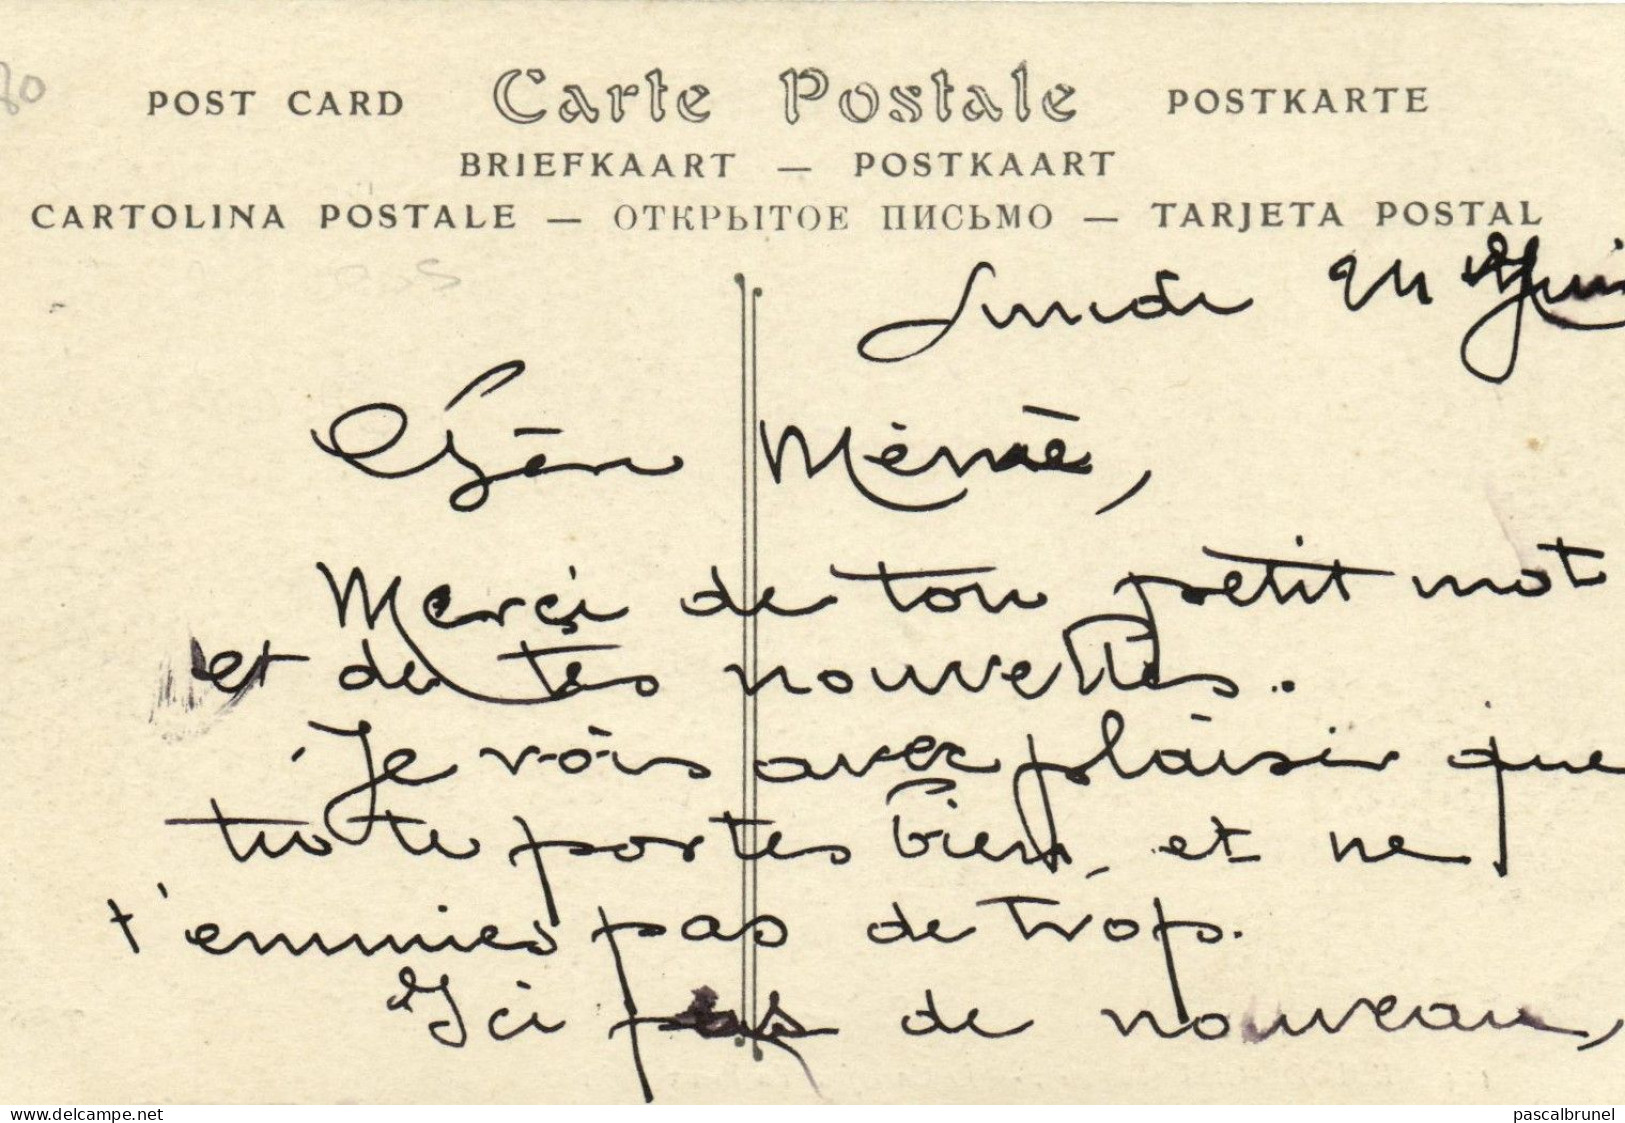 80
POST CARD Carte Postale POSTKARTE
BRIEFKAART — POSTKAART
CARTOLINA POSTALE — ОТКРЫТОЕ ПИСЬМО — TARJETA POSTAL
Lundi 24 Juin
Mémé,
Merci de ton petit mot
et de tes nouvelles.
Je vois avec plaisir que
tu te portes bien, et ne
t'ennuies pas de trop.
Ici pas de nouveau,
www.delcampe.net
pascalbrunel